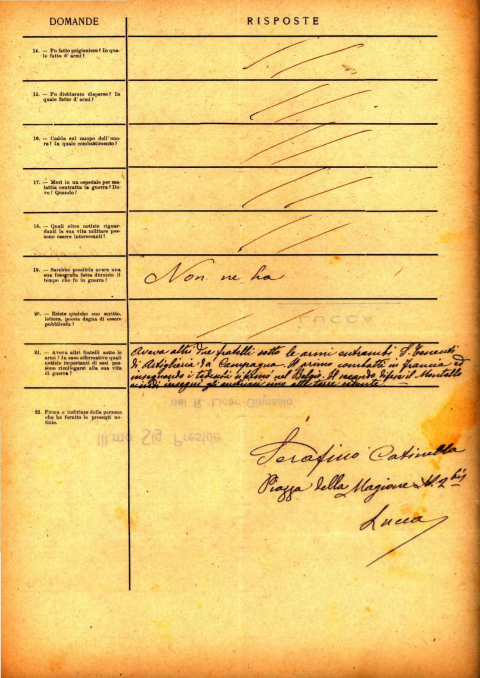 DOMANDE
RISPOSTE
14. — Fu fatto prigioniero? In qua-
le fatto d'armi?
15. — Fu dichiarato disperso? In
quale fatto d'armi?
16. — Cadde sul campo dell'ono-
re? In quale combattimento?
17. — Morì in un ospedale per ma-
lattia contratta in guerra? Do-
ve? Quando?
18. — Quali altre notizie riguar-
danti la sua vita militare pos-
sono essere interessanti?
19. — Sarebbe possibile avere una
sua fotografia fatta durante il
tempo che fu in guerra?
Non ne ho
20. — Esiste qualche suo scritto,
lettera, poesia degna di essere
pubblicata?
LUCCA
21. — Aveva altri fratelli sotto le
armi? In caso affermativo quali
notizie importanti di essi pos-
sono ricollegarsi alla sua vita
di guerra?
Aveva altri due fratelli sotto le armi entrambi S. Tenenti
di Artiglieria da Campagna. Il primo combatté in francia ed
inseguendo i tedeschi nel Belgio. Il secondo difese il Montello
e inseguì gli austriaci fino alle terre
del R. Liceo Ginnasio
Ill.mo Sig. Preside
22. Firma e indirizzo della persona
che ha fornito le presenti no-
tizie.
Serafino Catinella
Piazza della Magione N 2 bis
Lucca